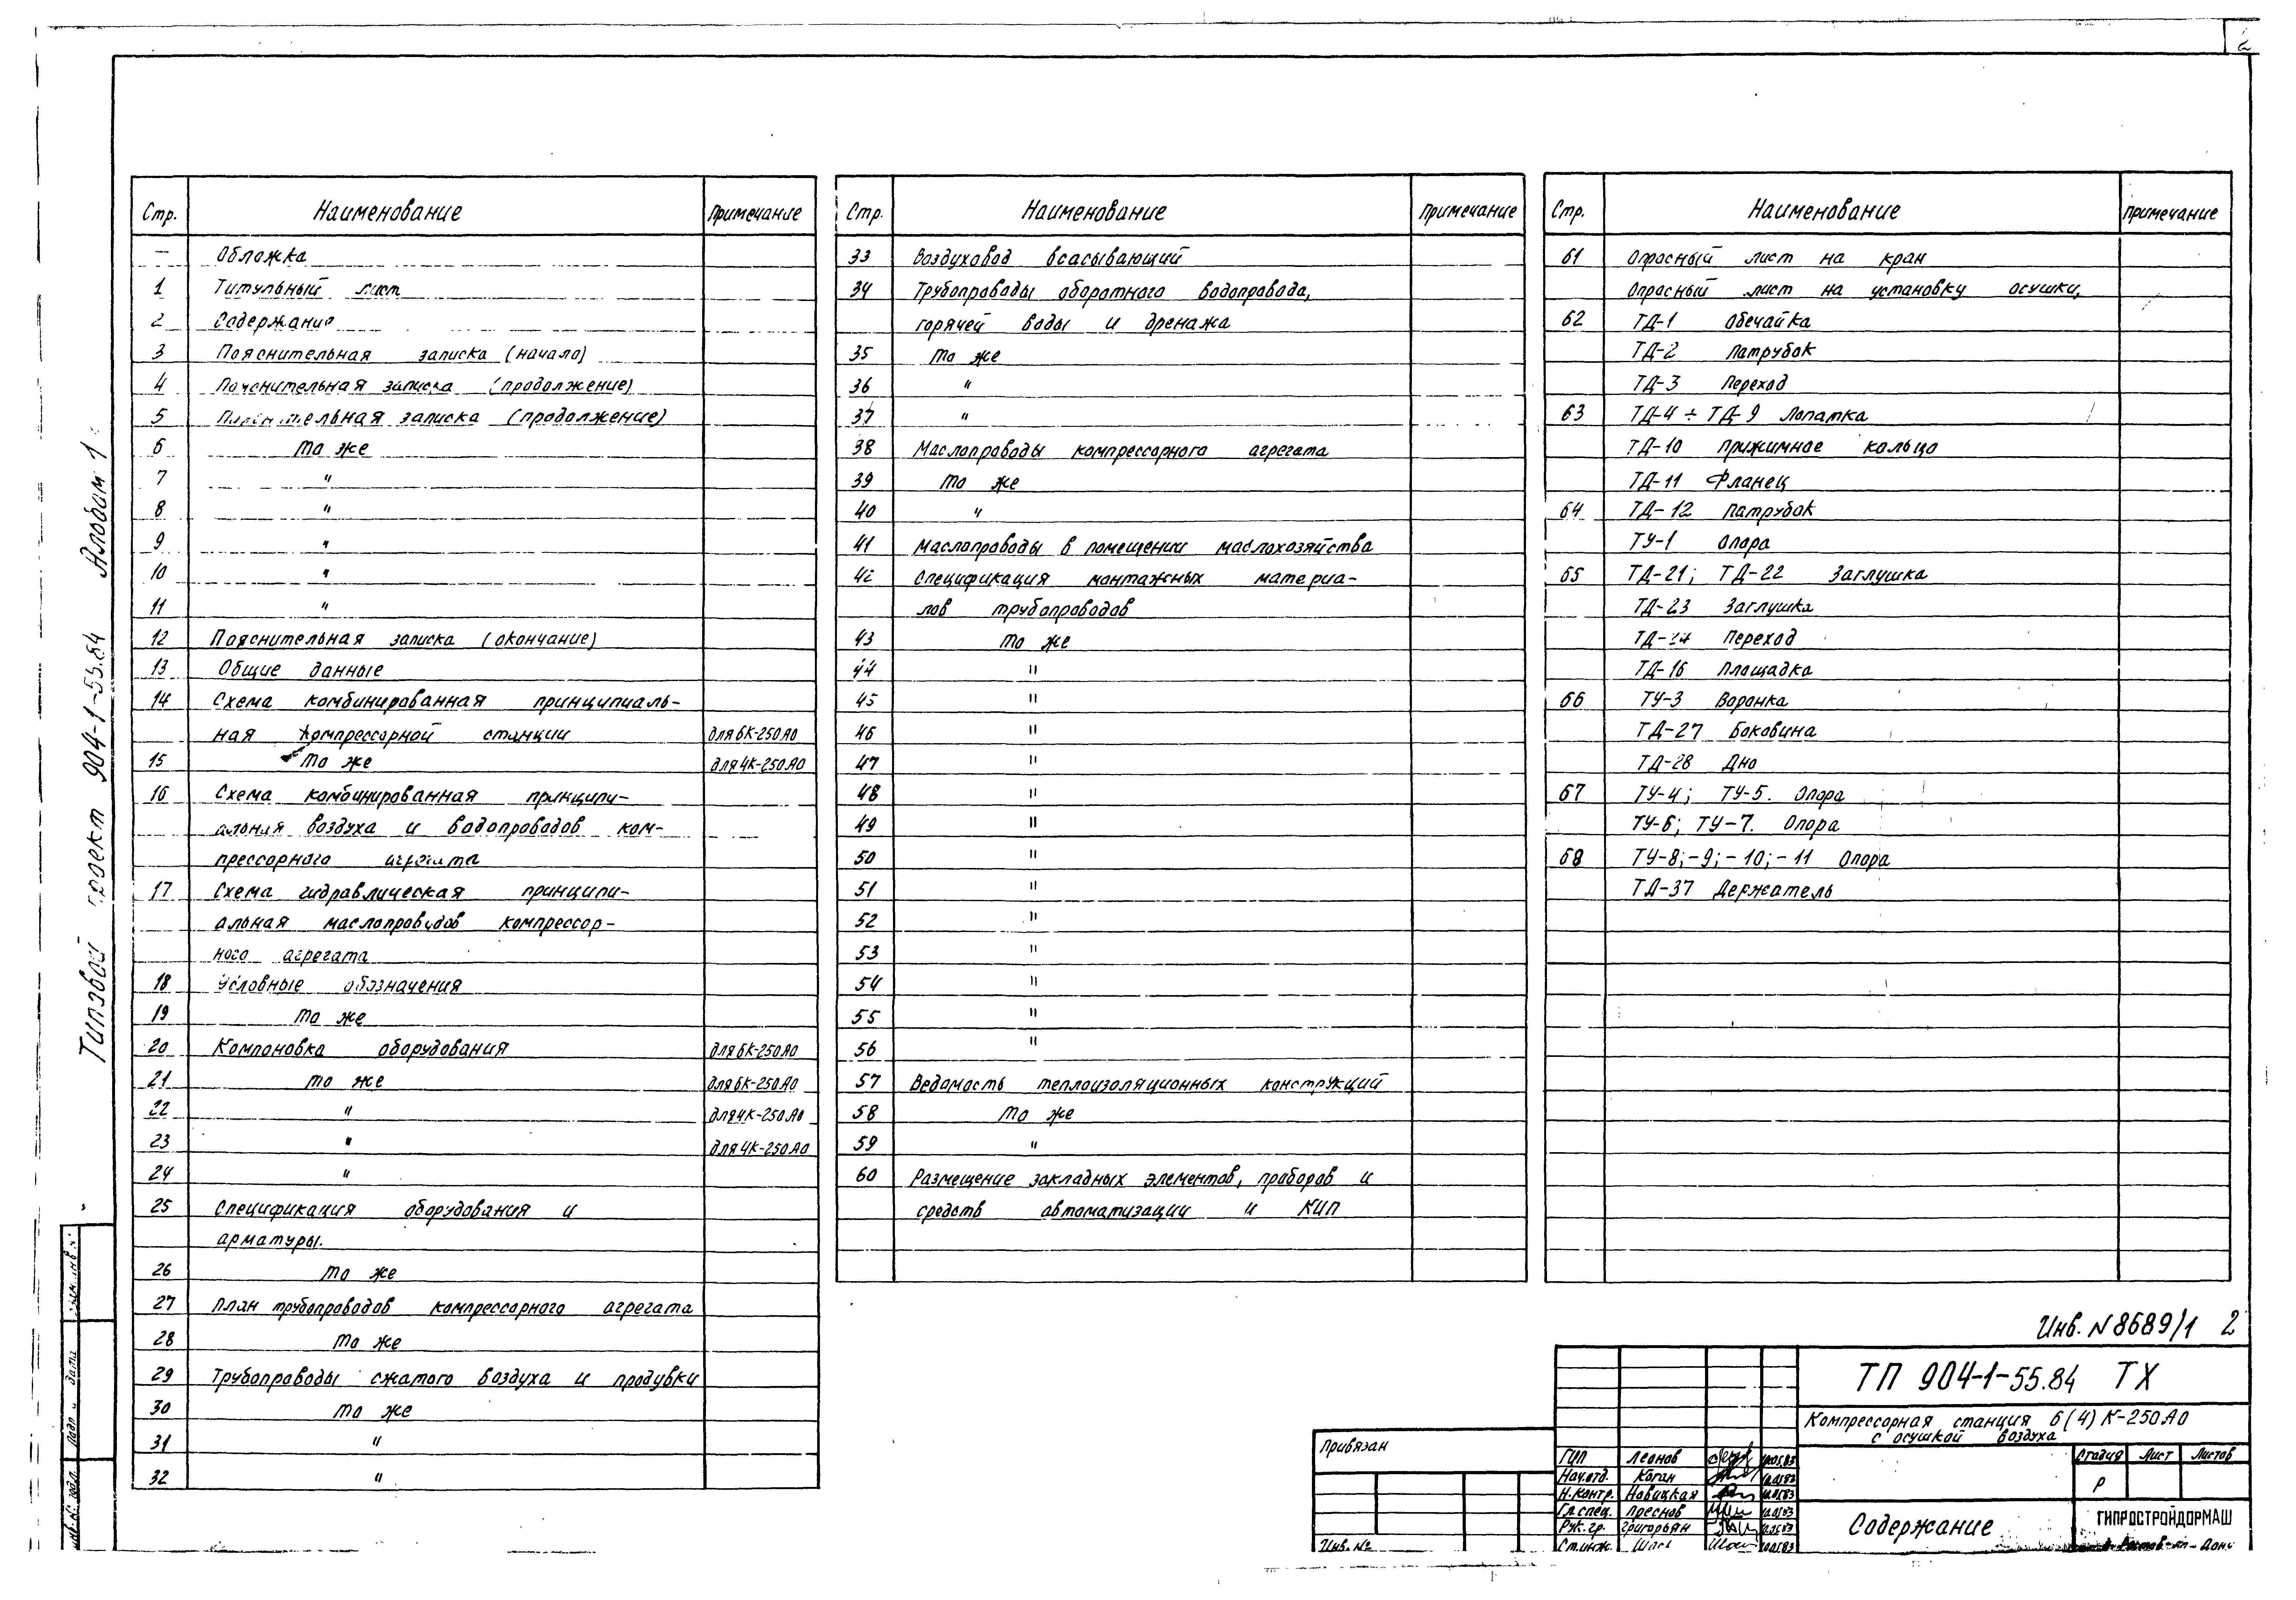 2
Типовой проект 904-1-55.84 Альбом 1
Стр. Наименование Примечание
— Обложка
1 Титульный лист
2 Содержание
3 Пояснительная записка (начало)
4 Пояснительная записка (продолжение)
5 Пояснительная записка (продолжение)
6 То же
7 "
8 "
9 "
10 "
11 "
12 Пояснительная записка (окончание)
13 Общие данные
14 Схема комбинированная принципиаль-
ная компрессорной станции для 6К-250А0
15 То же для 4К-250А0
16 Схема комбинированная принципи-
альная воздуха и водопроводов ком-
прессорного агрегата
17 Схема гидравлическая принципи-
альная маслопроводов компрессор-
ного агрегата
18 Условные обозначения
19 То же
20 Компоновка оборудования для 6К-250А0
21 То же для 6К-250А0
22 " для 4К-250А0
23 " для 4К-250А0
24 "
25 Спецификация оборудования и
арматуры.
26 То же
27 План трубопроводов компрессорного агрегата
28 То же
29 Трубопроводы сжатого воздуха и продувки
30 То же
31 "
32 "
Стр. Наименование Примечание
33 Воздуховод всасывающий
34 Трубопроводы оборотного водопровода,
горячей воды и дренажа
35 То же
36 "
37 "
38 Маслопроводы компрессорного агрегата
39 То же
40 "
41 Маслопроводы в помещении маслохозяйства
42 Спецификация монтажных материа-
лов трубопроводов
43 То же
44 "
45 "
46 "
47 "
48 "
49 "
50 "
51 "
52 "
53 "
54 "
55 "
56 "
57 Ведомость теплоизоляционных конструкций
58 То же
59 "
60 Размещение закладных элементов, приборов и
средств автоматизации и КИП
Стр. Наименование Примечание
61 Опросный лист на кран
Опросный лист на установку осушки,
62 ТД-1 Обечайка
ТД-2 Патрубок
ТД-3 Переход
63 ТД-4 ÷ ТД-9 Лопатка
ТД-10 Прижимное кольцо
ТД-11 Фланец
64 ТД-12 Патрубок
ТУ-1 Опора
65 ТД-21; ТД-22 Заглушка
ТД-23 Заглушка
ТД-24 Переход
ТД-16 Площадка
66 ТУ-3 Воронка
ТД-27 Боковина
ТД-28 Дно
67 ТУ-4; ТУ-5. Опора
ТУ-6; ТУ-7. Опора
68 ТУ-8; -9; -10; -11 Опора
ТД-37 Держатель
Инв. N 8689/1 2
ТП 904-1-55.84 ТХ
Компрессорная станция 6(4)К-250А0
с осушкой воздуха
Привязан
Инв. №
ГИП Леонов
Нач.отд. Каган
Н.контр. Новицкая
Гл.спец. Преснов
Рук.гр. Григорьян
Ст.инж.
Стадия Лист Листов
Р
Содержание
ГИПРОСТРОЙДОРМАШ
г. Ростов-на-Дону
Взам. инв. №
Подп. и дата
Инв. № подл.